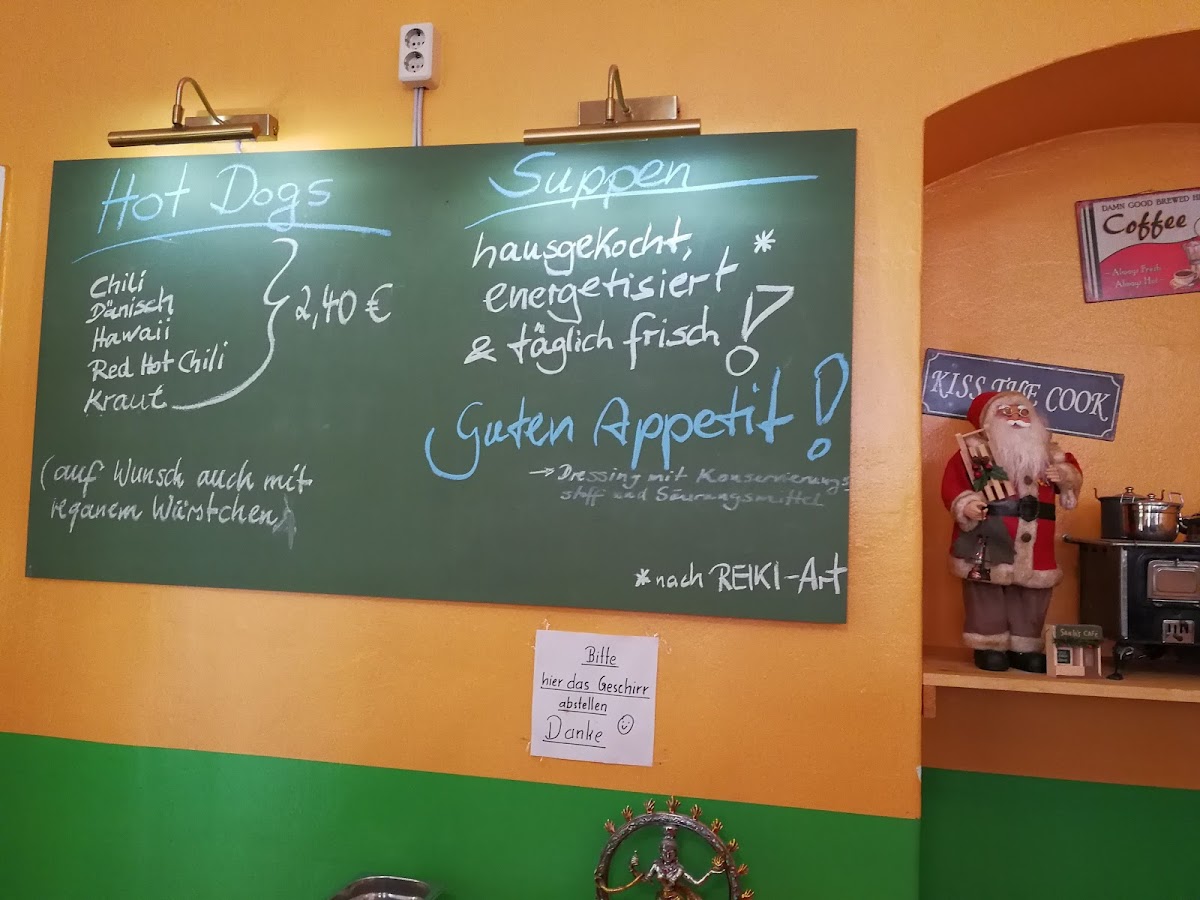 Hot Dogs
Chili
Dänisch
Hawaii
Red Hot Chili
Kraut
2,40 €
(auf Wunsch auch mit
veganem Würstchen)
Suppen
hausgekocht,
energetisiert *
& täglich frisch!
Guten Appetit!
→ Dressing mit Konservierungs-
stoff und Säurungsmittel
*nach REIKI-Art
Bitte
hier das Geschirr
abstellen
Danke ☺
DAMN GOOD BREWED
Coffee
Always Fresh
Always Hot
KISS THE COOK
Café